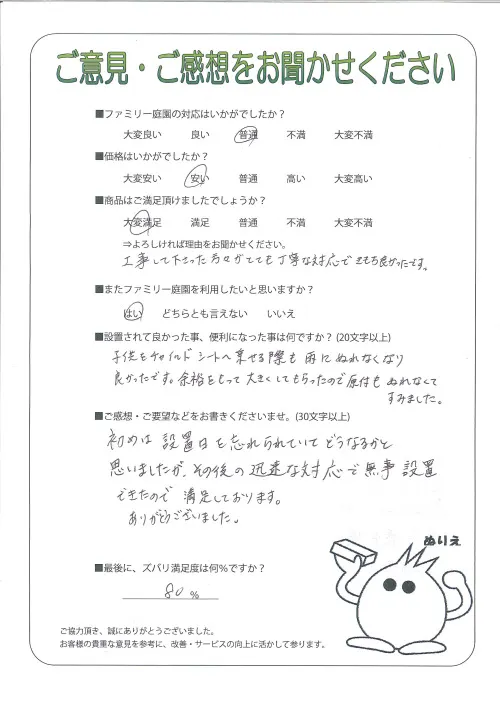 ご意見・ご感想をお聞かせください
■ファミリー庭園の対応はいかがでしたか？
大変良い 良い 普通 不満 大変不満
■価格はいかがでしたか？
大変安い 安い 普通 高い 大変高い
■商品はご満足頂けましたでしょうか？
大変満足 満足 普通 不満 大変不満
⇒よろしければ理由をお聞かせください。
工事して下さった方々がとても丁寧な対応で きもち良かったです。
■またファミリー庭園を利用したいと思いますか？
はい どちらとも言えない いいえ
■設置されて良かった事、便利になった事は何ですか？(20文字以上)
子供をチャイルドシートへ乗せる際も 雨にぬれなくなり
良かったです。余裕をもって大きくしてもらったので原付も ぬれなくて
すみました。
■ご感想・ご要望などをお書きくださいませ。(30文字以上)
初めは 設置日を忘れられていて どうなるかと
思いましたが、その後の迅速な対応で無事 設置
できたので 満足しております。
ありがとうございました。
ぬりえ
■最後に、ズバリ満足度は何％ですか？
80 %
ご協力頂き、誠にありがとうございました。
お客様の貴重な意見を参考に、改善・サービスの向上に活かして参ります。